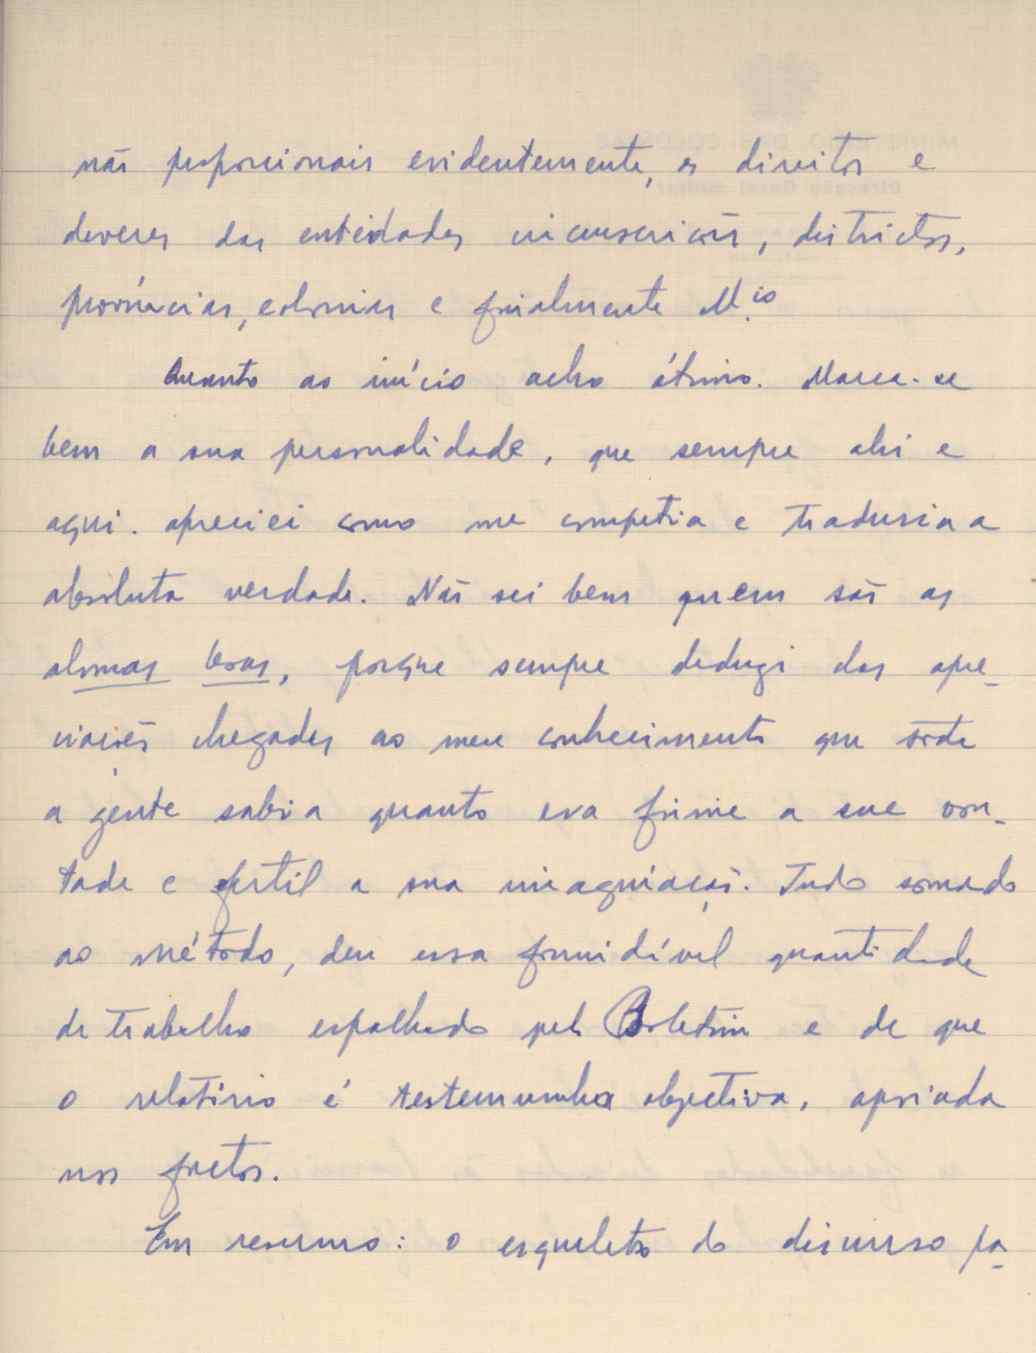 não proporcionais evidentemente, os direitos e
deveres das entidades circunscrições, districtos,
províncias, colonias e finalmente M.io
Quanto ao início acho ótimo. Marca-se
bem a sua personalidade, que sempre ahi e
aqui. apreciei como me competia e tradusia a
absoluta verdade. Não sei bem quem são as
almas boas, porque sempre deduzi das apre-
ciações chegadas ao meu conhecimento que tôda
a gente sabia quanto era firme a sua von-
tade e fertil a sua imaginação. Tudo somado
ao método, deu essa formidável quantidade
de trabalho espalhado pelo Boletim e de que
o relatório é testemunha objectiva, apoiada
nos factos.
Em resumo: o esqueleto do discurso pa-